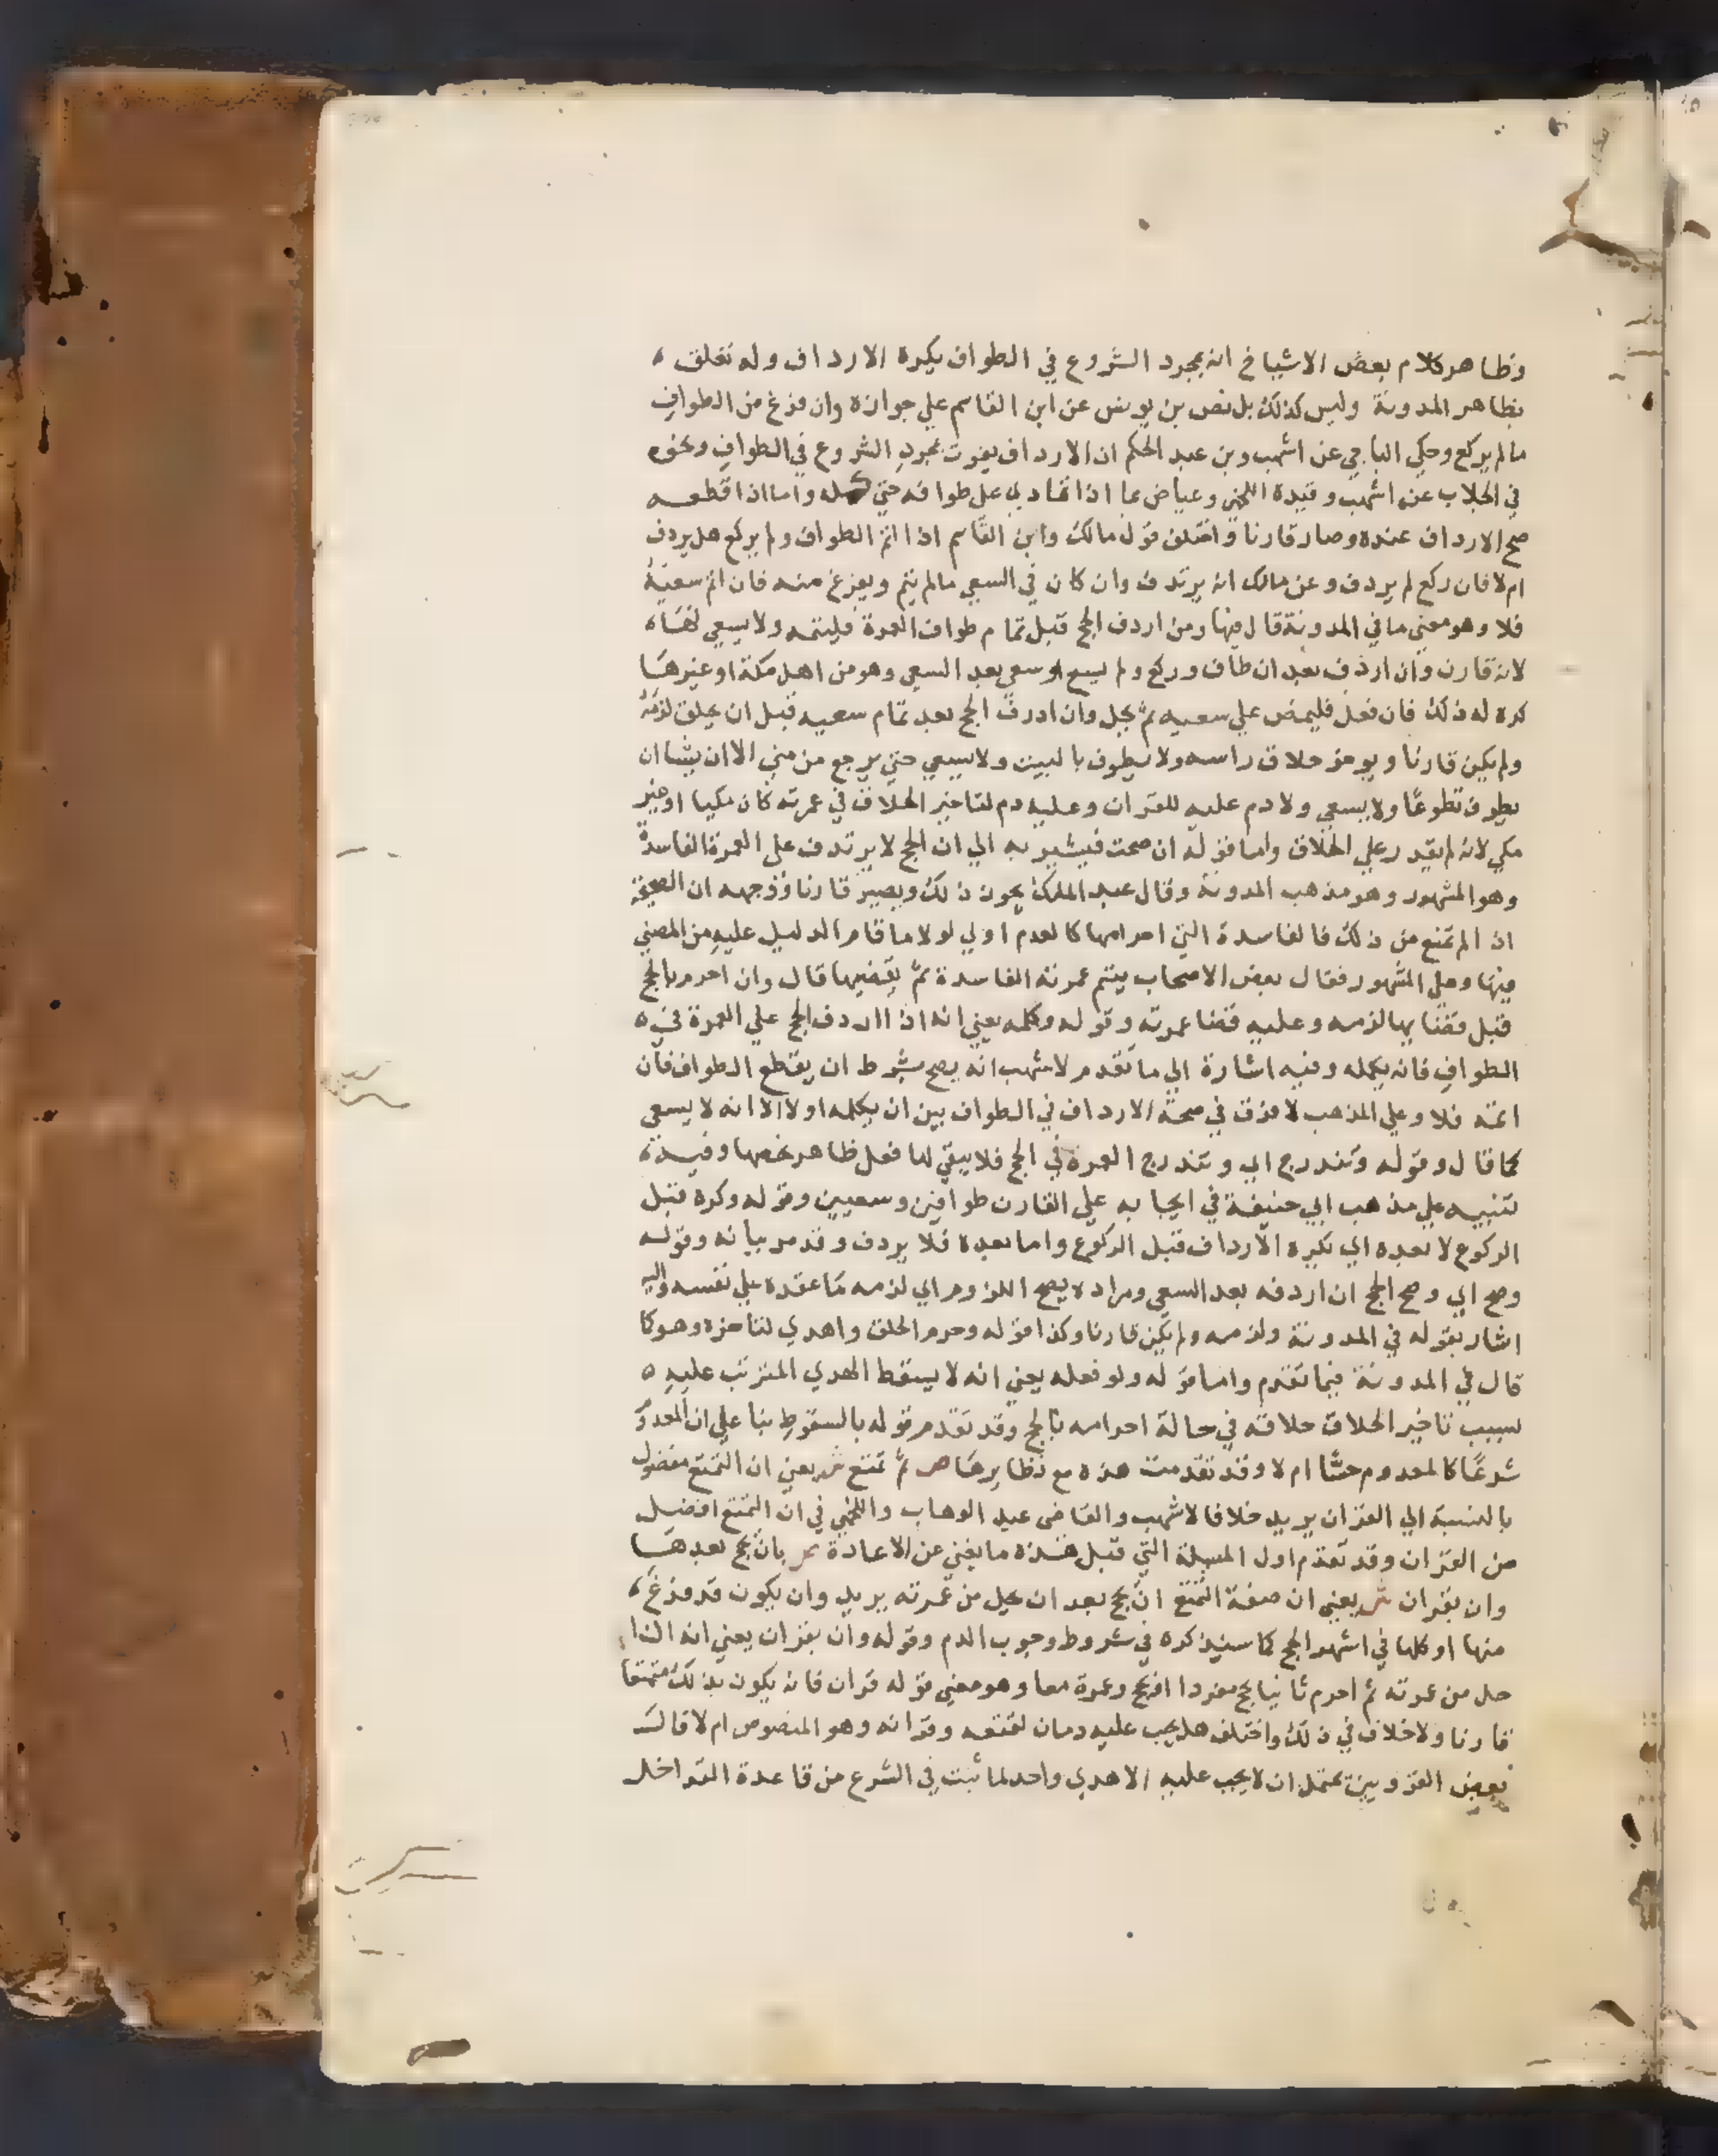 وظاهر كلام بعض الاشياخ انه بمجرد الشروع في الطواف يكره الارداف وله تعلق
بظاهر المدونة وليس كذلك بل نص بن يونس عن ابن القاسم علي جوازه وان فرغ من الطواف
مالم يركع وحكي الباجي عن اشهب وبن عبد الحكم ان الارداف يفوت بمجرد الشروع في الطواف ونحوه
في الجلاب عن اشهب وقيده اللخمي وعياض بما اذا تمادي علي طوافه حتي كمله واما اذا قطعه
صح الارداف عنده وصار قارنا واختلف قول مالك وابن القاسم اذا اتم الطواف ولم يركع هل يردف
ام لا فان ركع لم يردف وعن مالك انه يرتدف وان كان في السعي مالم يتم ويفرغ منه فان اتم سعيه
فلا وهو معني ما في المدونة قال فيها ومن اردف الحج قبل تمام طواف العمرة فليتمه ولا يسعي لها
لانه قارن وان اردف بعد ان طاف وركع ولم يسع او سعي بعد السعي وهو من اهل مكة او غيرها
كره له ذلك فان فعل فليمض علي سعيه ثم يحل وان اردف الحج بعد تمام سعيه قبل ان يحلق لزمه
ولم يكن قارنا ويوخر حلاق راسه ولا يطوف بالبيت ولا يسعي حتي يرجع من مني الا ان يشا ان
يطوف تطوعا ولا يسعي ولا دم عليه للقران وعليه دم لتاخير الحلاق في عمرته كان مكيا او غير
مكي لانه لم يقدر علي الحلاق واما قوله ان صحت فيشير به الي ان الحج لا يرتدف علي العمرة الفاسدة
وهو المشهور وهو مذهب المدونة وقال عبد الملك يجوز ذلك ويصير قارنا ووجهه ان الصحيحة
اذا لم تمنع من ذلك فالفاسدة التي احرامها كالعدم اولي لولا ما قام الدليل عليه من المضي
فيها وعلي المشهور فقال بعض الاصحاب يتم عمرته الفاسدة ثم يقضيها قال وان احرم بالحج
قبل قضايها لزمه وعليه قضا عمرته وقوله وكمله يعني انه اذا اردف الحج علي العمرة في
الطواف فانه يكمله وفيه اشارة الي ما تقدم لاشهب انه يصح بشرط ان يقطع الطواف فان
اتمه فلا وعلي المذهب لا فرق في صحة الارداف في الطواف بين ان يكمله اولا الا انه لا يسعي
كما قال وقوله وتندرج اي وتندرج العمرة في الحج فلا يبقي لها فعل ظاهر يخصها وفيه
تنبيه علي مذهب ابي حنيفة في ايجابه علي القارن طوافين وسعيين وقوله وكره قبل
الركوع لا بعده اي يكره الارداف قبل الركوع واما بعده فلا يردف وقد مر بيانه وقوله
وصح اي وصح الحج ان اردفه بعد السعي ومراده يصح اللزوم اي لزمه ما عقده علي نفسه واليه
اشار بقوله في المدونة ولزمه ولم يكن قارنا وكذا قوله وحرم الحلق واهدي لتاخره وهو كما
قال في المدونة فيما تقدم واما قوله ولو فعله يعني انه لا يسقط الهدي المترتب عليه
بسبب تاخير الحلاق حلاقه في حالة احرامه بالحج وقد تقدم قوله بالسقوط بنا علي ان المعدوم
شرعا كالمعدوم حسا ام لا وقد تقدمت هذه مع نظايرها ص ثم تمتع ش يعني ان التمتع مفضول
بالنسبة الي القران يريد خلافا لاشهب والقاضي عبد الوهاب واللخمي في ان التمتع افضل
من القران وقد تقدم اول المسيلة التي قبل هذه ما يغني عن الاعادة ص بان يحج بعدها
وان بقران ش يعني ان صفة التمتع ان يحج بعد ان يحل من عمرته يريد وان يكون قد فرغ
منها او كلها في اشهر الحج كما سيذكره في شروط وجوب الدم وقوله وان بقران يعني انه اذا
حل من عمرته ثم احرم ثانيا بحج مفردا او بحج وعمرة معا وهو معني قوله قران فانه يكون بذلك متمتعا
قارنا ولا خلاف في ذلك واختلف هل يجب عليه دمان لتمتعه وقرانه وهو المنصوص ام لا قال
بعض القرويين يحتمل ان لا يجب عليه الا هدي واحد لما ثبت في الشرع من قاعدة التداخل